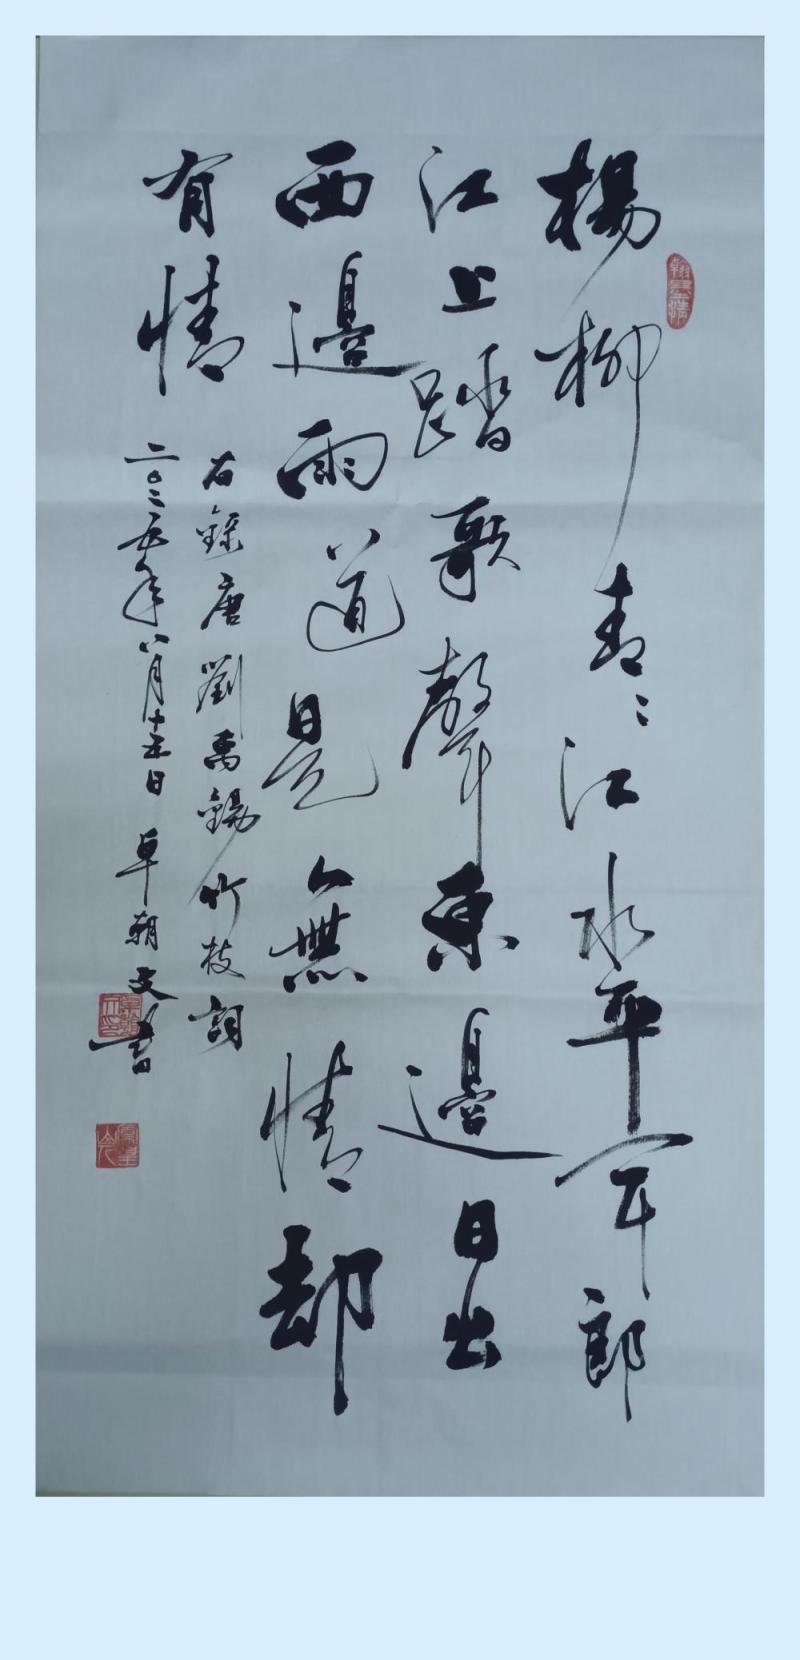 楊柳青〻江水平聞郎
江上踏歌聲東邊日出
西邊雨道是無情却
有情
右錄唐劉禹錫竹枝詞
二〇二五年八月十五日 卓朝文書